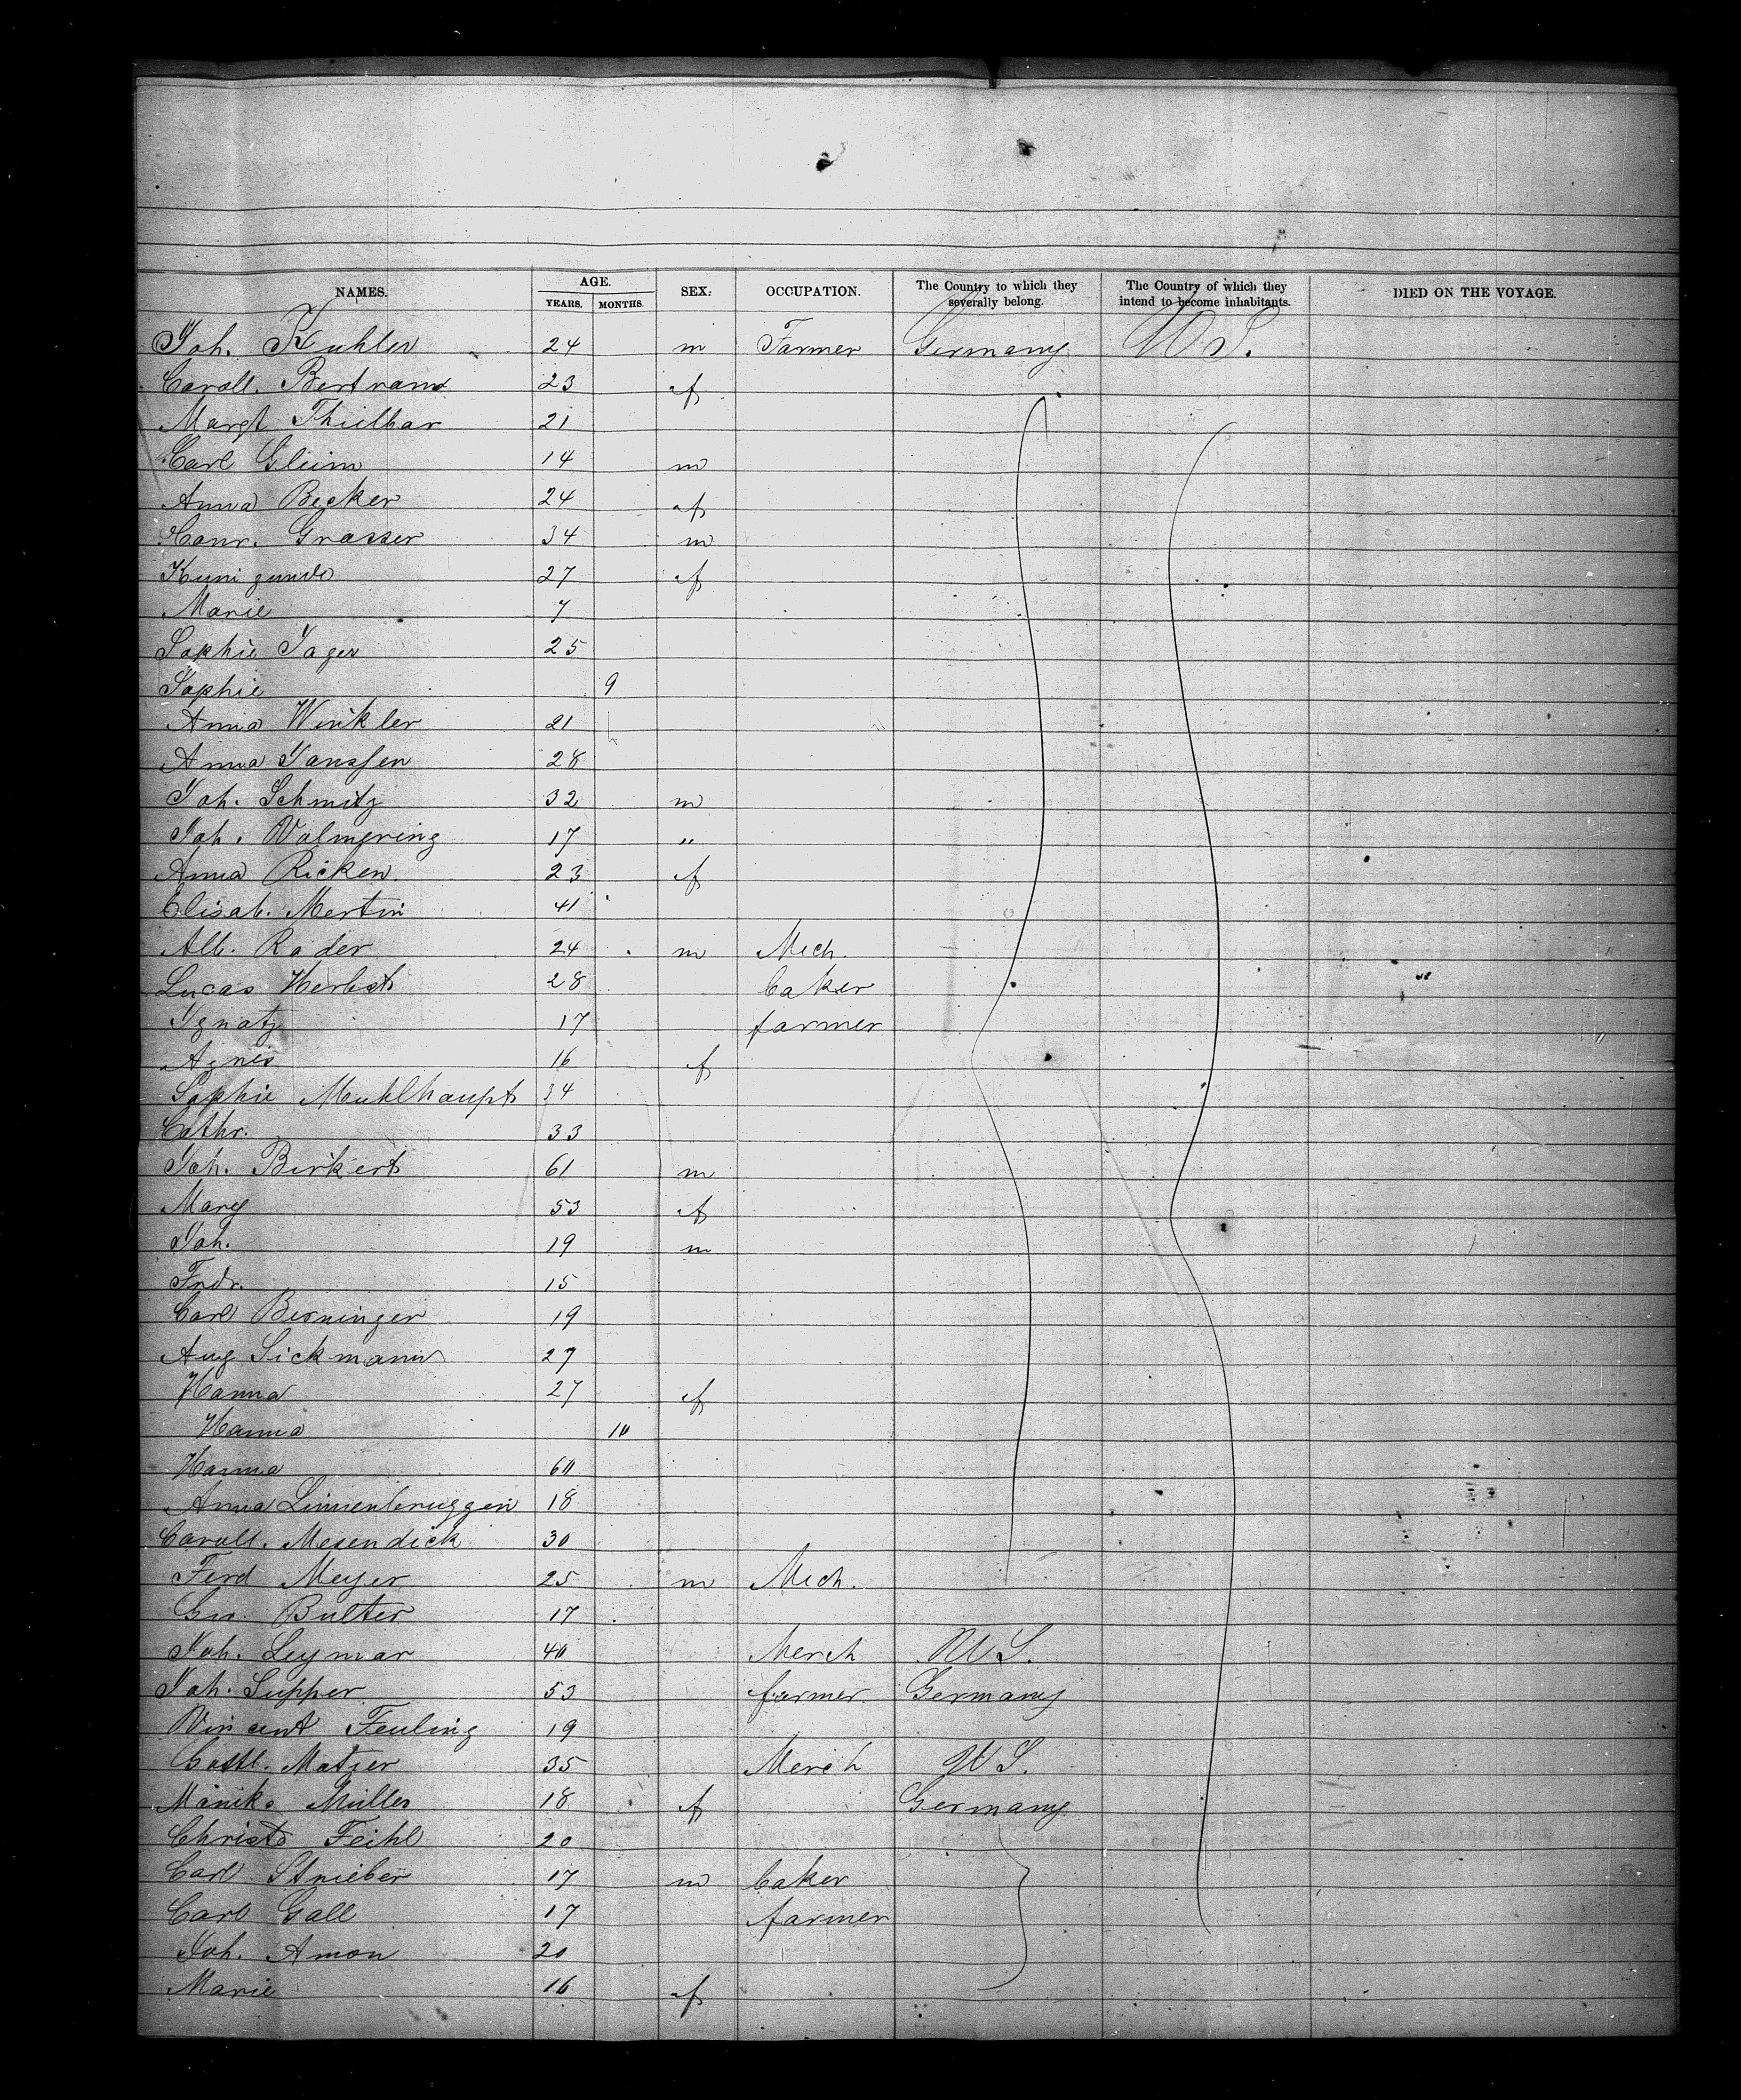 NAMES. AGE. SEX. OCCUPATION. The Country to which they severally belong. The Country of which they intend to become inhabitants. DIED ON THE VOYAGE.
YEARS. MONTHS.
Joh. Kuhler 24 m Farmer Germany U S.
Caroll. Bertram 23 f
Margt Thielbar 21
Carl Gleim 14 m
Anna Becker 24 f
Conr. Grasser 34 m
Kunigunde 27 f
Marie 7
Sophie Jager 25
Sophie 9
Anna Winkler 21
Anna Janssen 28
Joh. Schmitz 32 m
Joh. Volmering 17 "
Anna Ricken 23 f
Elisab. Mertin 41
Alb. Rader 24 m Mech.
Lucas Herbst 28 baker
Ignatz 17 farmer
Agnes 16 f
Sophie Muhlhaupt 34
Cathr. 33
Joh. Birkert 61 m
Marg 53 f
Joh. 19 m
Fridr. 15
Carl Berninger 19
Aug Sickmann 27
Hanna 27 f
Hanna 10
Hanna 60
Anna Linnenbruggen 18
Caroll. Mesendick 30
Ferd Meyer 25 m Mech.
Geo. Bulter 17
Joh. Leymar 40 Merch U S.
Joh. Supper 53 farmer Germany
Vincent Feuling 19
Gottl. Matzer 35 Merch U S.
Monika Müller 18 f Germany
Christo Feihl 20
Carl Strieber 17 m baker
Carl Gall 17 farmer
Joh. Amon 20
Marie 16 f